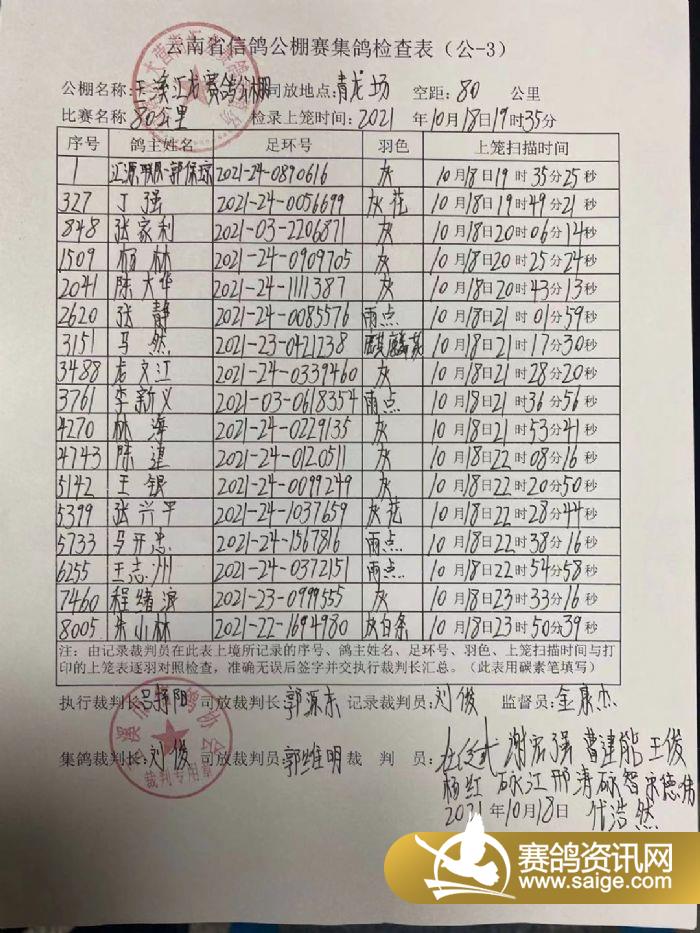 云南省信鸽公棚赛集鸽检查表（公-3）
公棚名称: 玉溪汇龙赛鸽公棚 司放地点: 青龙场 空距: 80 公里
比赛名称 80公里 检录上笼时间: 2021 年10月18日19时35分
序号 鸽主姓名 足环号 羽色 上笼扫描时间
1 汇源 郭保琼 2021-24-0890616 灰 10月18日19时35分25秒
327 丁强 2021-24-0056699 灰花 10月18日19时49分21秒
848 张家利 2021-03-2206871 灰 10月18日20时06分14秒
1509 杨林 2021-24-0909705 灰 10月18日20时25分24秒
2041 陈大华 2021-24-1111387 灰 10月18日20时43分13秒
2620 张静 2021-24-0085576 雨点 10月18日21时01分59秒
3151 马然 2021-23-0421238 麒麟花 10月18日21时17分30秒
3488 龙文江 2021-24-0339460 灰 10月18日21时28分20秒
3761 李新义 2021-03-0618354 雨点 10月18日21时36分56秒
4270 林海 2021-24-0229135 灰 10月18日21时53分41秒
4743 陈建 2021-24-0120511 灰 10月18日22时08分16秒
5142 王银 2021-24-0099249 灰 10月18日22时20分50秒
5399 张兴平 2021-24-1037659 灰花 10月18日22时28分44秒
5733 马开忠 2021-24-1567816 雨点 10月18日22时38分16秒
6255 王志州 2021-24-0372151 雨点 10月18日22时54分58秒
7460 程绪浪 2021-23-0999555 灰 10月18日23时33分16秒
8005 朱小林 2021-22-1694980 灰白条 10月18日23时50分39秒
注: 由记录裁判员在此表上填所记录的序号、鸽主姓名、足环号、羽色、上笼扫描时间与打
印的上笼表逐羽对照检查，准确无误后签字并交执行裁判长汇总。（此表用碳素笔填写）
执行裁判长: 吕择阳 司放裁判长: 郭源东 记录裁判员: 刘俊 监督员: 金康杰
集鸽裁判长: 刘俊 司放裁判员: 郭维明 裁 判 员: 谢宏强 曹建能 王俊
杨红 江 邢涛 智 宋德伟
2021年10月18日 代浩然
裁判专用章
赛鸽资讯网
www.saige.com